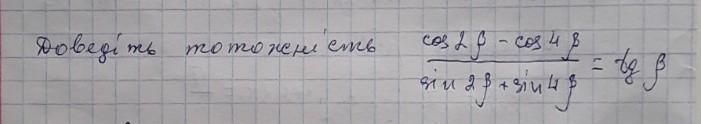 Доведіть тотожність (cos 2β - cos 4β)/(sin 2β + sin 4β) = tg β